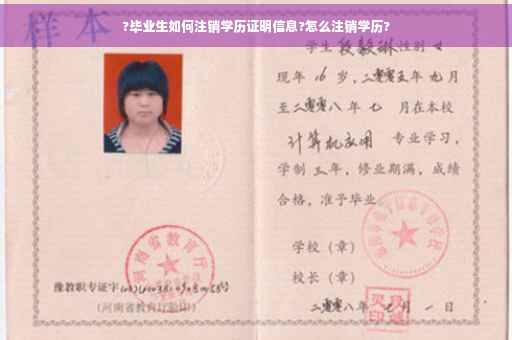 ?毕业生如何注销学历证明信息?怎么注销学历?
样本
学生段毅琳性别女
现年16岁,二零零五年九月
至二零零八年七月在本校
计算机应用 专业学习,
学制三年,修业期满,成绩
合格,准予毕业
学校(章)
校长(章)
二零零八年七月一日
河南省教育厅
豫教职专证字
(河南省教育厅验印)